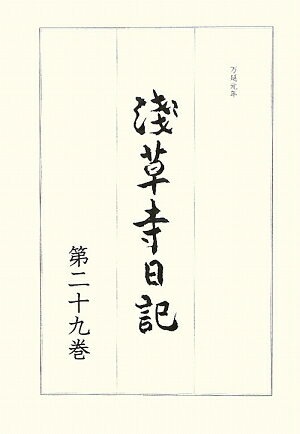 万延元年
淺草寺日記
第二十九巻